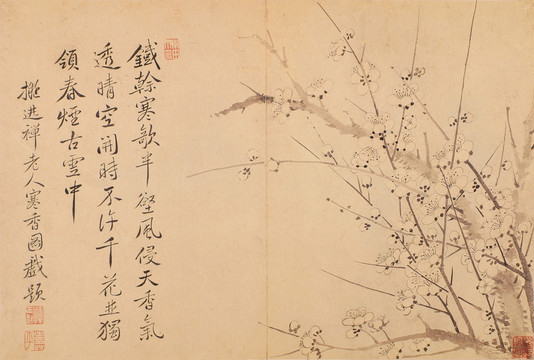 鐵榦寒欹半壑風侵天香氣
透晴空開時不許千花並獨
領春煙古雪中
擬逃禪老人寒香圖戲題